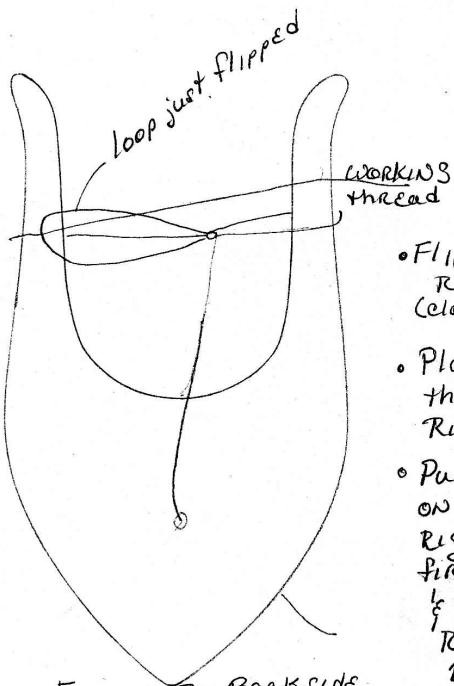 loop just flipped
WORKING
thread
• Fli
(clo
• Pla
th
Ri
• Pu
ON
Rig
fir
&
To
BACKSIDE